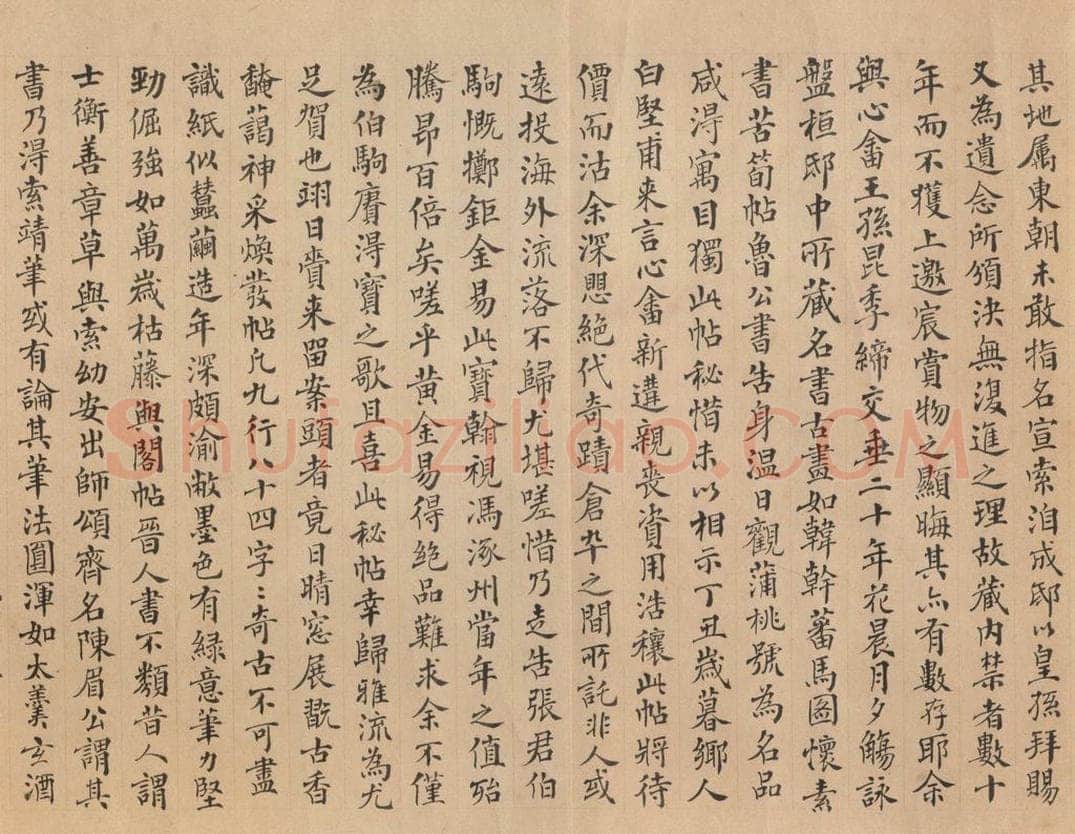 其地属東朝未敢指名宣索洎成邸以皇孫拜賜
又為遺念所頒決無復進之理故藏内禁者數十
年而不獲上邀宸賞物之顯晦其亦有數存耶余
與心畬王孫昆季締交垂二十年花晨月夕觴詠
盤桓邸中所藏名書古畫如韓幹蕃馬圖懷素
書苦筍帖魯公書告身温日觀蒲桃號為名品
咸淂寓目獨此帖秘惜未以相示丁丑歲暮鄉人
白堅甫来言心畬新遘親喪資用浩穰此帖將待
價而沽余深愳絶代奇蹟倉卒之間所託非人或
遠投海外流落不歸尤堪嗟惜乃走告張君伯
駒慨擲鉅金易此寶翰視馮涿州當年之值殆
騰昻百倍矣嗟乎黄金易得絶品難求余不僅
為伯駒賡得寶之歌且喜此秘帖幸歸雅流為尤
足賀也翊日賫来留案頭者竟日晴窓展翫古香
馣藹神采煥發帖凡九行八十四字〻奇古不可盡
識紙似蠶繭造年深頗渝敝墨色有緑意筆力堅
勁倔強如萬歲枯藤與閣帖晉人書不類昔人謂
士衡善章草與索幼安出師頌齊名陳眉公謂其
書乃淂索靖筆或有論其筆法圓渾如太羹玄酒
Shufaziliao.COM